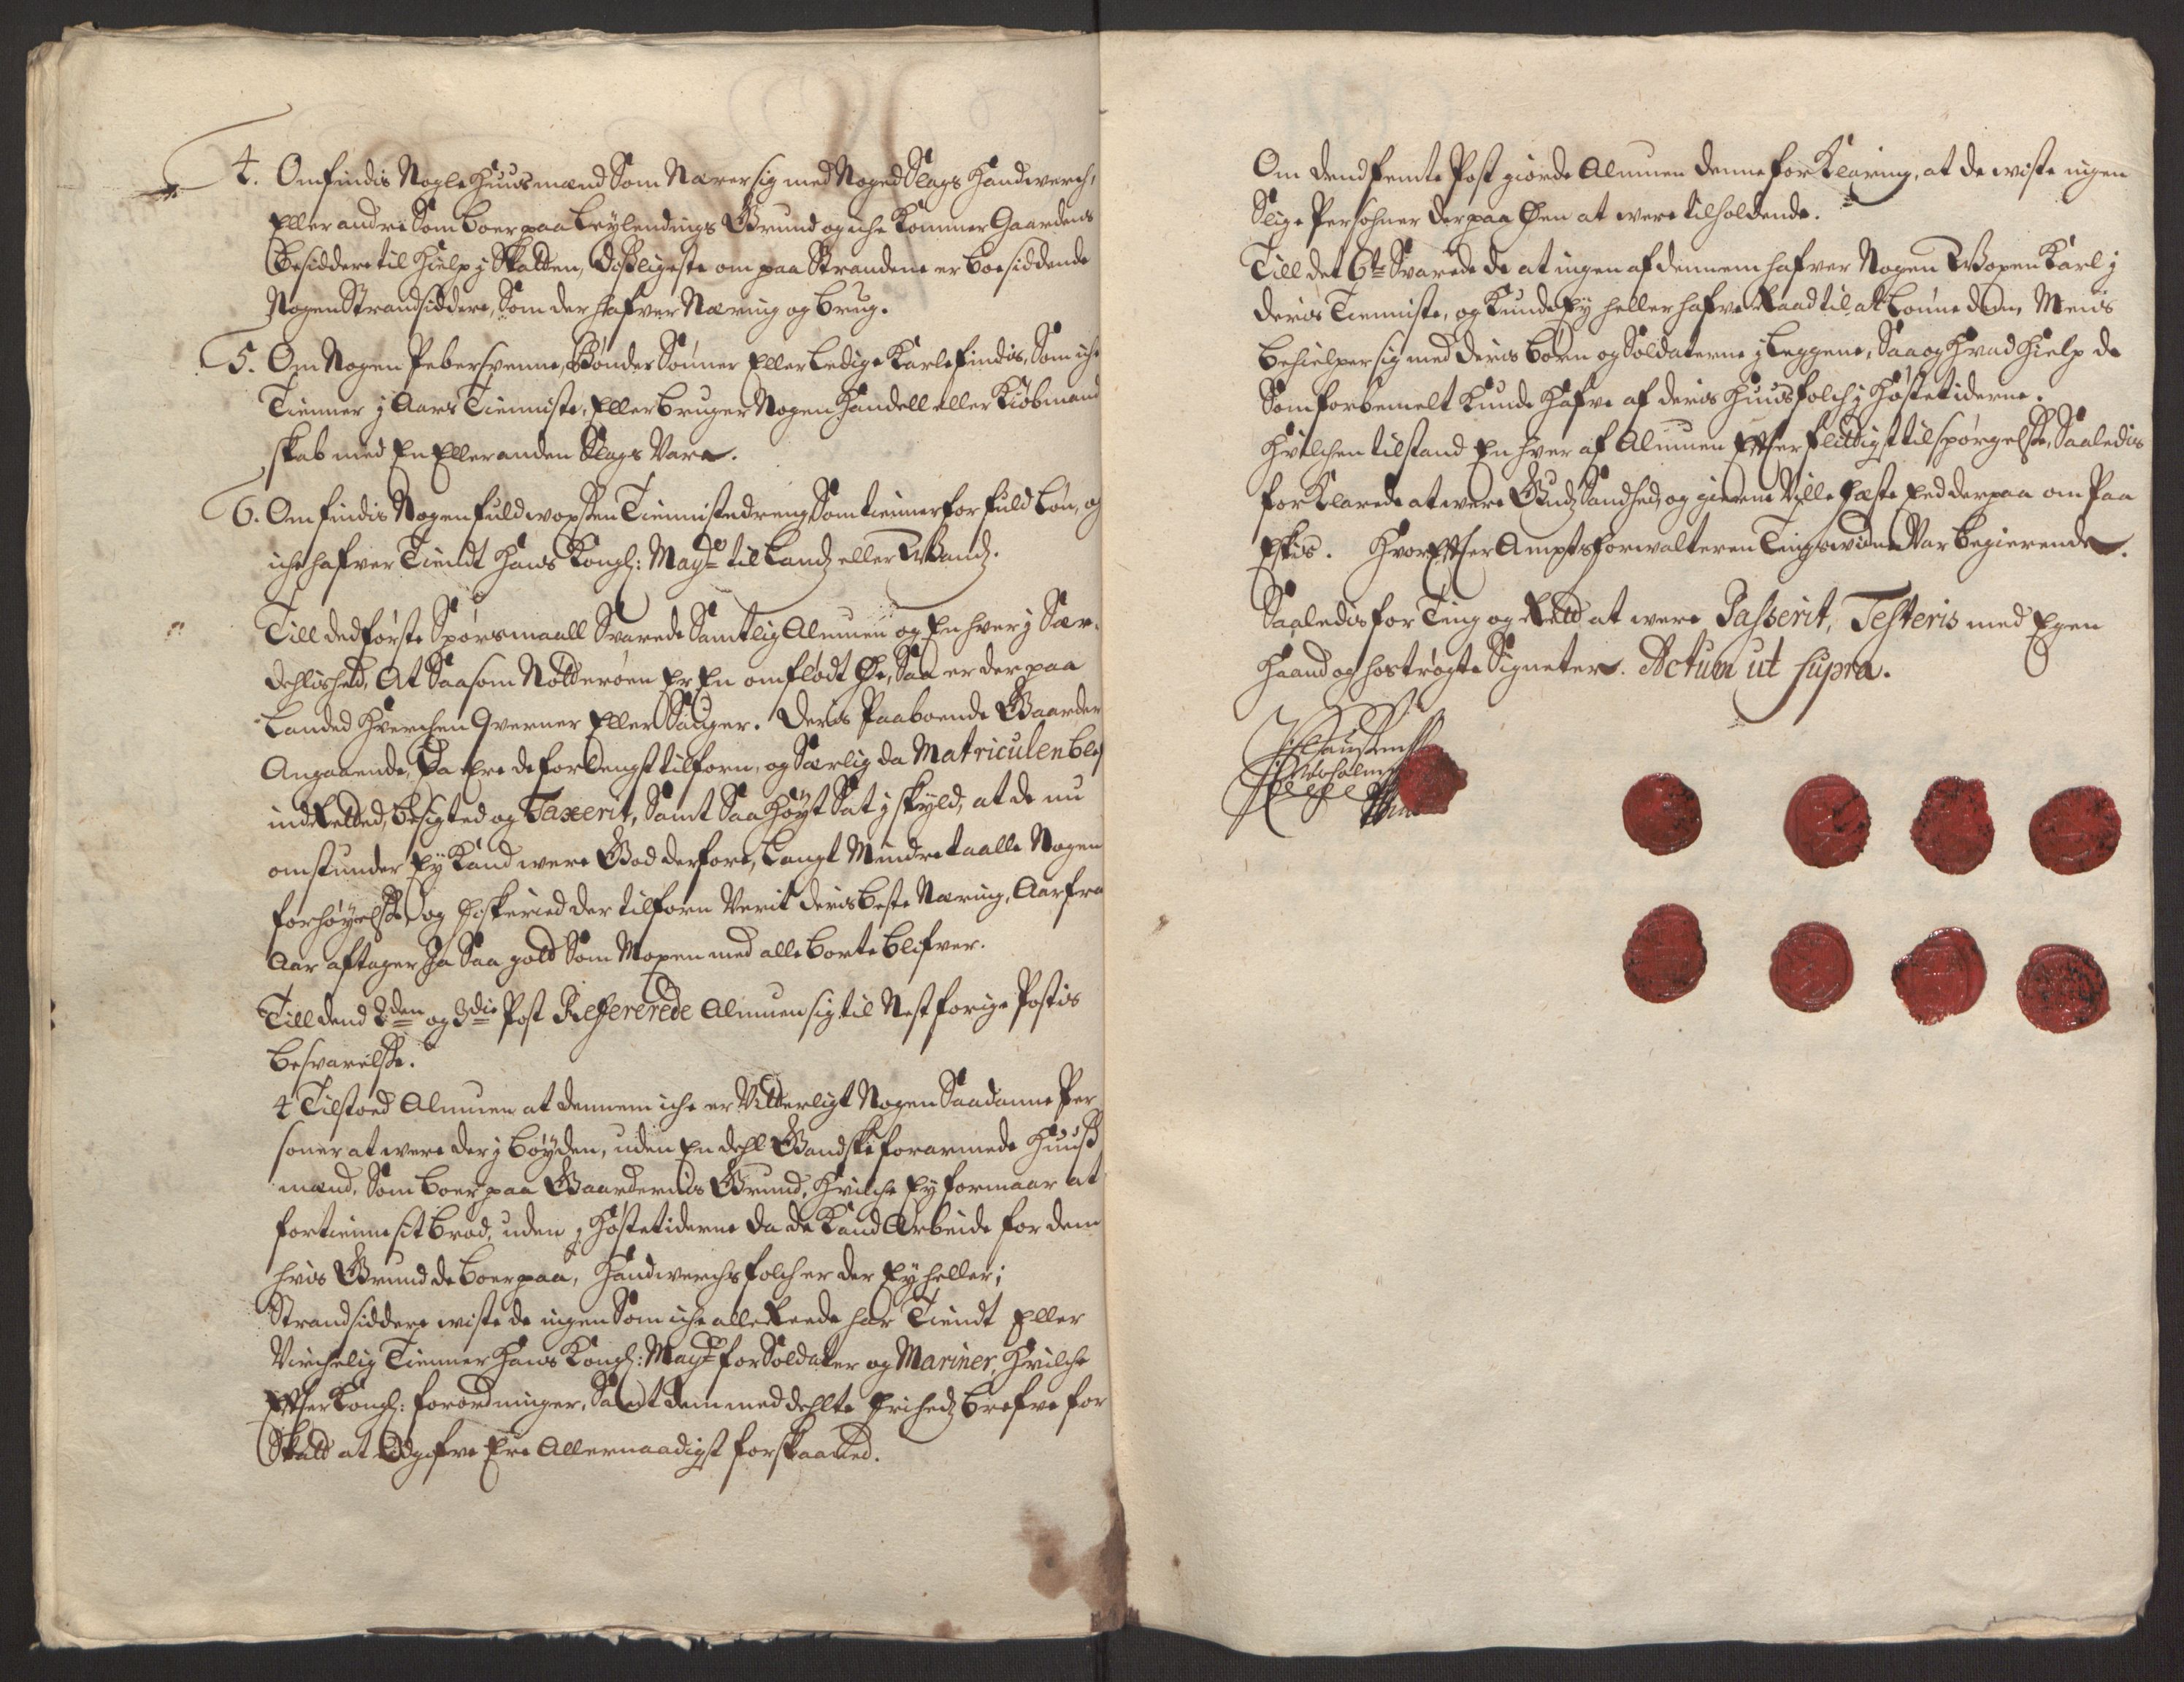 4. Om findis Nogle Huusmænd Som Nærer sig med Noged Slags Handverch,
Eller andre Som boer paa Leylendings Grund og iche kommer Gaardens
besiddere til hielp j Skatten, Disligeste om paa Strandene er boesiddende
Nogen Strandsiddere, Som der hafver Næring og brug.
5. Om Nogen Pebersvenne, Bønder Sønner Eller Ledige Karle findis, Som iche
Tienner j Aars Tienniste, Eller bruger Nogen Handell eller Kiøbmand
skab med En Eller anden Slags Vare.
6. Om findis Nogen fuldvoxsen Tiennistedreng Som tienner for fuld Løn, og
iche hafver Tiendt Hans Kongl: Mayt til Landz eller Vandz.
Till ded første Spørsmaall Svarede Samtlig Almuen og En hver j Sær-
dehlished, At Saasom Nøtterøen Er En omflødt Øe, Saa er der paa
Landed Hverchen Qverner Eller Sauger. Deris Paaboende Gaarder
Angaaende, Da Ere de for Lengst tilforn, og Særlig da Matriculen blef
indRetted, besigted og Taxerit, Samt Saa Høyt Sat j skyld, at de nu
omstunder Ey Kand were God derfore, Langt Mindre taalle Nogen
forhøyelse, og fiskeried der tilforn Verit deris beste Næring, Aar fra
Aar aftager Ja Saa gott Som Moxen med alle borte blifver.
Till dend 2den og 3die Post Refererede Almuen sig til Nestforige Postis
besvarelse.
4 Tilstoed Almuen at dennem iche er Vitterligt Nogen Saadanne Per
soner at were der j bøyden, uden En dehl Gandske forarmede Huuß
mænd, Som boer paa Gaardernis Grund, Hvilche Ey formaar at
fortienne sit brød, uden j Høstetiderne da de Kand Arbeide for dem
hvis Grund de boer paa, Handverchsfolch er der Ey heller;
Strandsiddere wiste de ingen Som iche alleReede har Tiendt Eller
Virchelig Tienner Hans Kongl: Mayt for Soldater og Mariner, Hvilche
Efter Kongl: forordninger, Samt dem meddehlte frihedz brefve for
Skatt at Udgifve Ere Allernaadigst forskaaned.
Om dend femte Post giorde Almuen denne forKlaring, at de wiste ingen
Slige Persohner der paa Øen at were tilholdende.
Till det 6te Svarede de at ingen af dennem hafver Nogen Voxen Karl j
deris Tienniste, og Kunde Ey heller hafve Raad til at Lønne dem, Mens
behielper sig med deris børn og Soldaterne j Leggene, Saa og Hvad Hielp de
Som forbemelt Kunde Hafve af deris Huusfolch j Høstetiderne.
Hvilchen tilstand En hver af Almuen Efter flittigst tilspørgelse, Saaledis
forKlarede at were Gudz Sandhed, og gierne Ville fæste Eed derpaa om Paa
Eskis. Hvor Efter Amptsforwalteren Tingswidne Var begierende.
Saaledis for Ting og Rett at were Passerit, Testeris med Egen
Haand og hostrøgte Signeter. Actum ut supra.